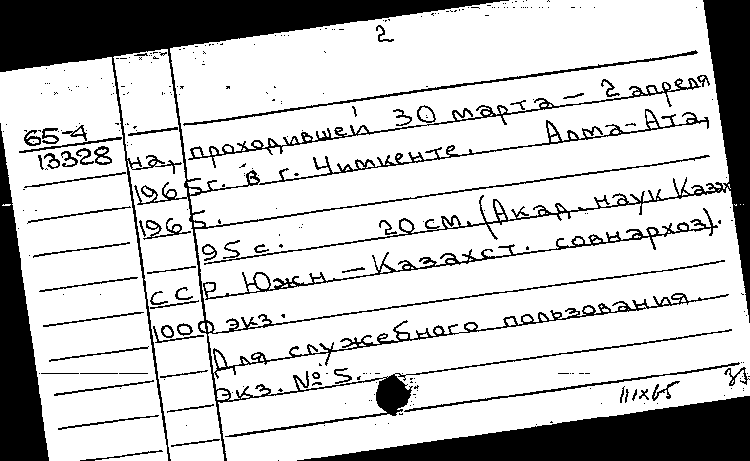 2
65-4
13328
на, проходившей 30 марта – 2 апреля
1965г. в г. Чимкенте. Алма-Ата,
1965.
95 с. 20 см. (Акад. наук Казах
ССР. Южн – Казахст. совнархоз).
1000 экз.
Для служебного пользования.
Экз. № 5.